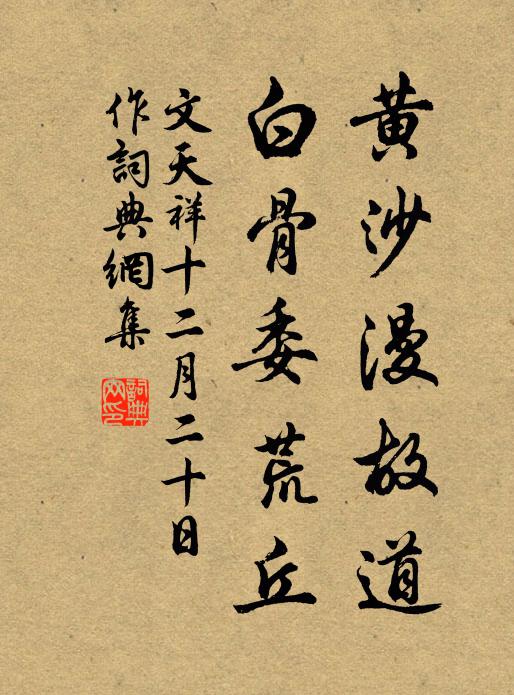 黃沙漫故道
白骨委荒丘
文天祥十二月二十日
作詞典網集
詞典網印